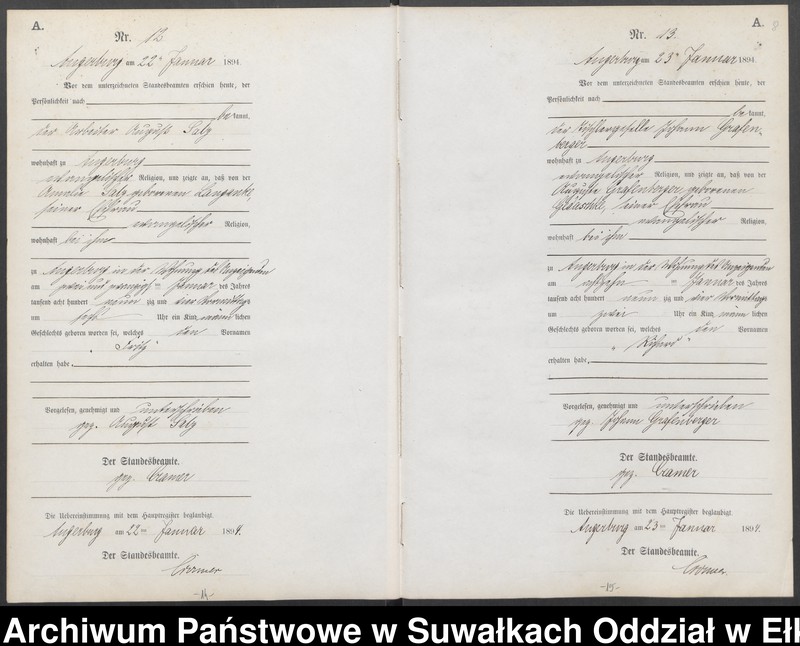 A.
Nr. 12
Angerburg am 22ten Januar 1894.
Vor dem unterzeichneten Standesbeamten erschien heute, der
Persönlichkeit nach
bekannt,
der Arbeiter August Salz
wohnhaft zu Angerburg
evangelischer Religion, und zeigte an, daß von der
Amalie Salz geborenen Langanke,
seiner Ehefrau
evangelischer Religion,
wohnhaft bei ihm
zu Angerburg in der Wohnung des Anzeigenden
am Januar des Jahres
tausend acht hundert neun zig und vier Vormittags
um Uhr ein Kind männlichen
Geschlechts geboren worden sei, welches den Vornamen
„Fritz“
erhalten habe.
Vorgelesen, genehmigt und unterschrieben
gez. August Salz
Der Standesbeamte.
gez. Cramer
Die Uebereinstimmung mit dem Hauptregister beglaubigt.
Angerburg am 22ten Januar 1894.
Der Standesbeamte.
Cramer
-14-
A.
Nr. 13.
Angerburg am 23ten Januar 1894.
Vor dem unterzeichneten Standesbeamten erschien heute, der
Persönlichkeit nach
bekannt,
der Johann Grafenberger
wohnhaft zu Angerburg
evangelischer Religion, und zeigte an, daß von der
Auguste Grafenberger geborenen
seiner Ehefrau
evangelischer Religion,
wohnhaft bei ihm
zu Angerburg in der Wohnung des Anzeigenden
am Januar des Jahres
tausend acht hundert neun zig und vier Vormittags
um Uhr ein Kind männlichen
Geschlechts geboren worden sei, welches den Vornamen
„Richard“
erhalten habe.
Vorgelesen, genehmigt und unterschrieben
gez. Johann Grafenberger
Der Standesbeamte.
gez. Cramer
Die Uebereinstimmung mit dem Hauptregister beglaubigt.
Angerburg am 23ten Januar 1894.
Der Standesbeamte.
Cramer
-15-
Archiwum Państwowe w Suwałkach Oddział w Ełk